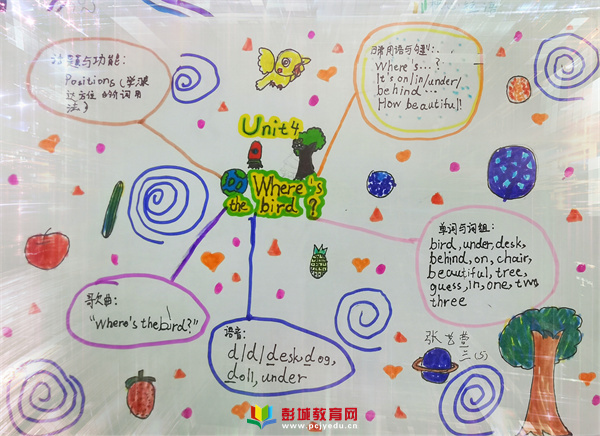 话题与功能:
Positions (学习表
达方位的介词用
法)
日常用语与句型:
Where's…?
It's on/in/under/
behind…
How beautiful!
Unit 4
Where's
the bird?
单词与词组:
bird, under, desk,
behind, on, chair,
beautiful, tree,
guess, in, one, two
three
歌曲:
"Where's the bird?"
语音:
d /d/ desk, dog,
doll, under
三(5)
彭城教育网
www.pcjyedu.cn